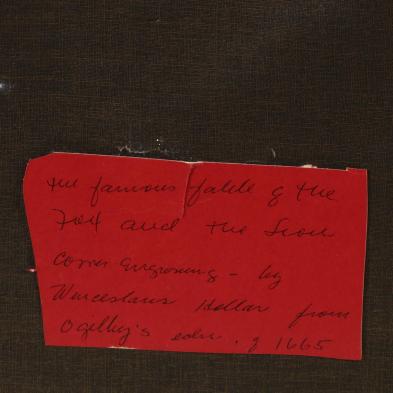 The famous fable of the
Fox and the Lion
Cover Engraving - by
Wenceslaus Hollar from
Ogilby's edn. of 1665